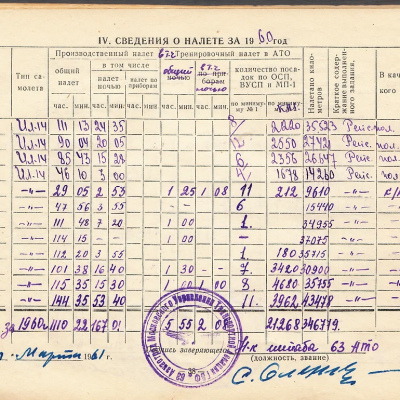 IV. СВЕДЕНИЯ О НАЛЕТЕ ЗА 1960 год
Тип самолета
Производственный налет
Тренировочный налет в АТО
общий налет
в том числе
налет ночью
налет по приборам
общий
ночью
по приборам
ночью
количество посадок по ОСП, ВУСП и МП-1
по минимуму № 1
Налетано километров
Краткое содержание выполненного задания.
В качес
кого
час. мин. час. мин. час. мин. час. мин. час. мин.
Ил-14 111 13 24 35 8 2220 35523 Рейс. пол.
Ил-14 90 04 20 05 12 2550 27420 Рейс. пол.
Ил-14 85 43 15 28 6 2356 26147 Рейс. пол.
Ил-14 46 10 3 00 4 1678 14260 Рейс. пол
-"- 29 05 2 53 1 25 1 08 11 212 9610 -"-
-"- 47 56 3 55 6 15440 -"-
-"- 111 48 7 20 1 00 1. 34955 -"-
-"- 114 15 - - 1 00 - 37075 -"-
-"- 112 20 3 55 1 180 35715 -"-
-"- 101 38 16 40 1 30 - - 7. 3420 30900 -"-
-"- 115 35 15 30 1 00 1 00 8 4680 35755 -"-
-"- 144 35 53 40 11. 3962 43478 -"-
за 1960г. 1110 22 167 01 5 55 2 08 21268 346779.
Марта 1961 г.
пись заверяется
Н-к штаба 63 АТО
(должность, звание)